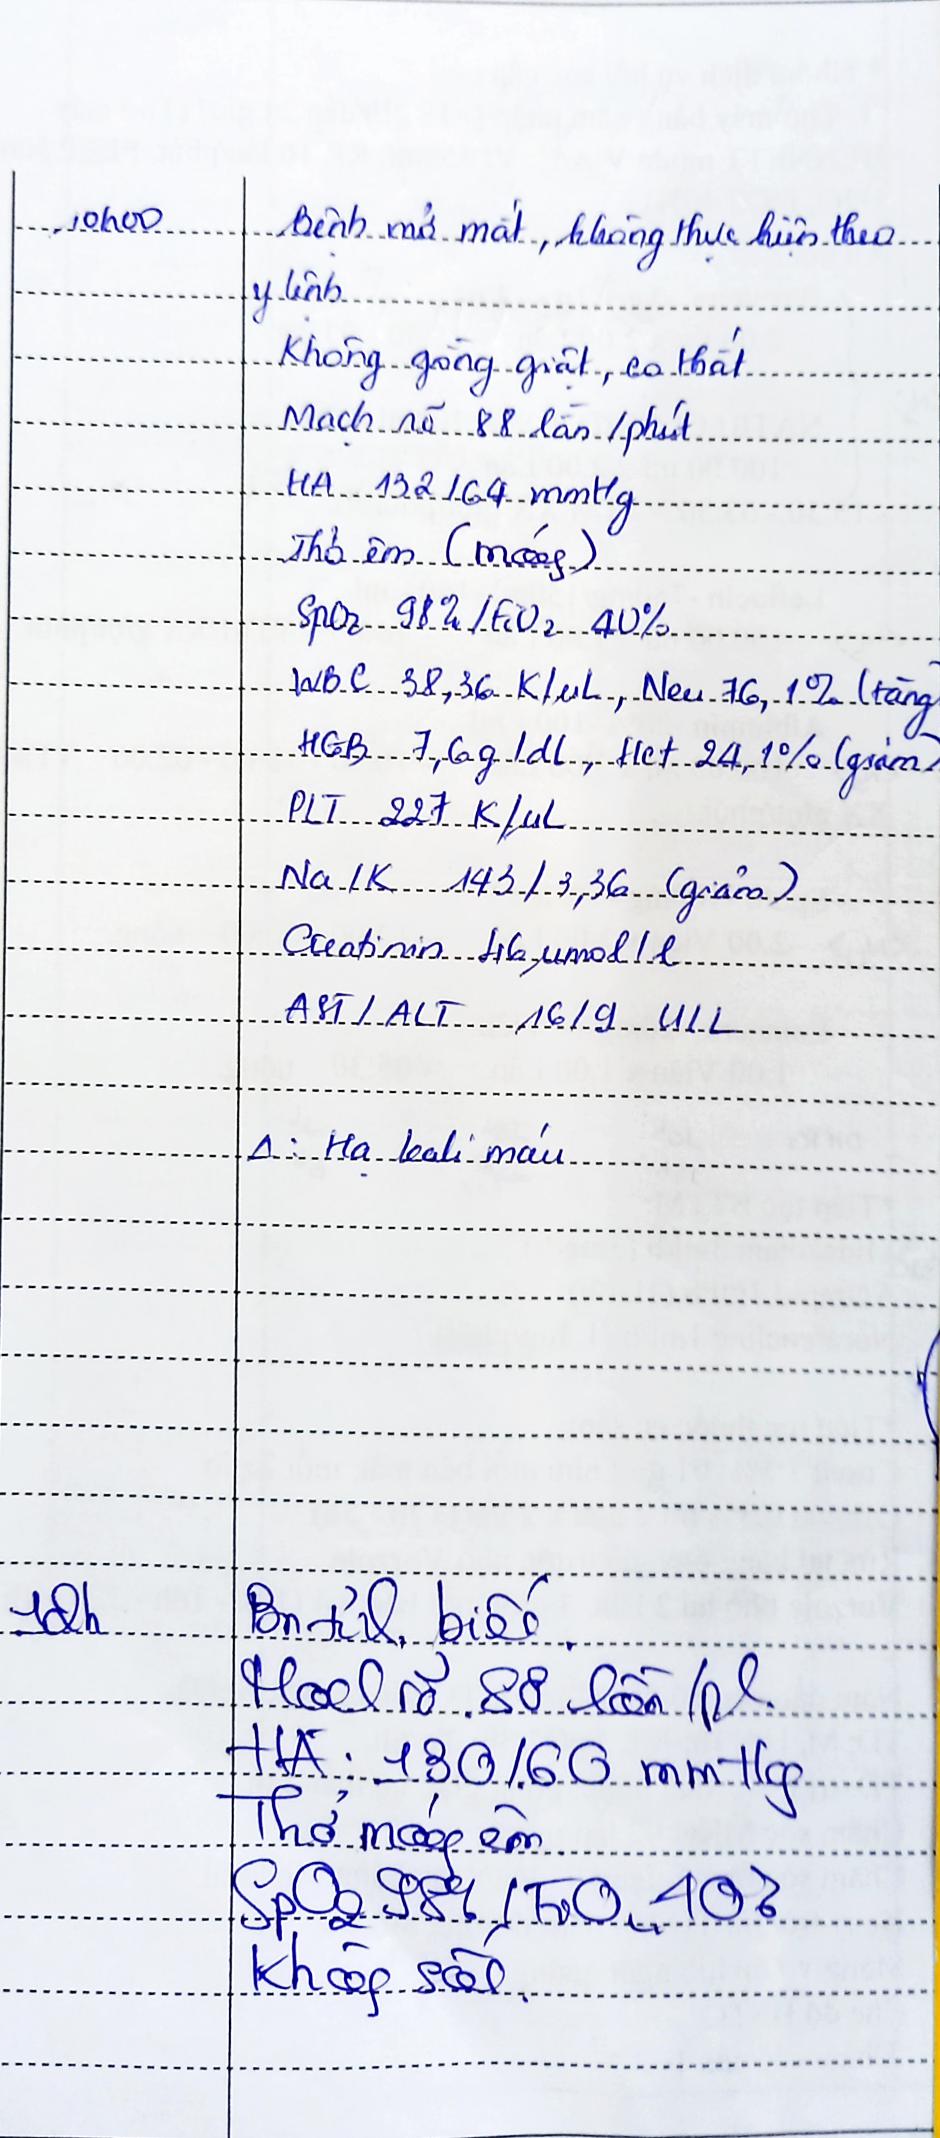 10h00 Bệnh mở mắt, không thực hiện theo
y lệnh
Không gồng giật, co thắt
Mạch rõ 88 lần/phút
HA 132/64 mmHg
Thở êm (máy)
SpO2 98%/FiO2 40%
WBC 38,36 K/uL, Neu 76,1% (tăng)
HGB 7,6g/dL, Hct 24,1% (giảm)
PLT 227 K/uL
Na/K 143/3,36 (giảm)
Creatinin 46 umol/l
AST/ALT 16/9 U/L
Δ: Hạ kali máu
Bn
rõ 88 lần/ph
HA: 130/60 mmHg
Thở máy êm
SpO2 98% / FiO2 40%
Không sốt.